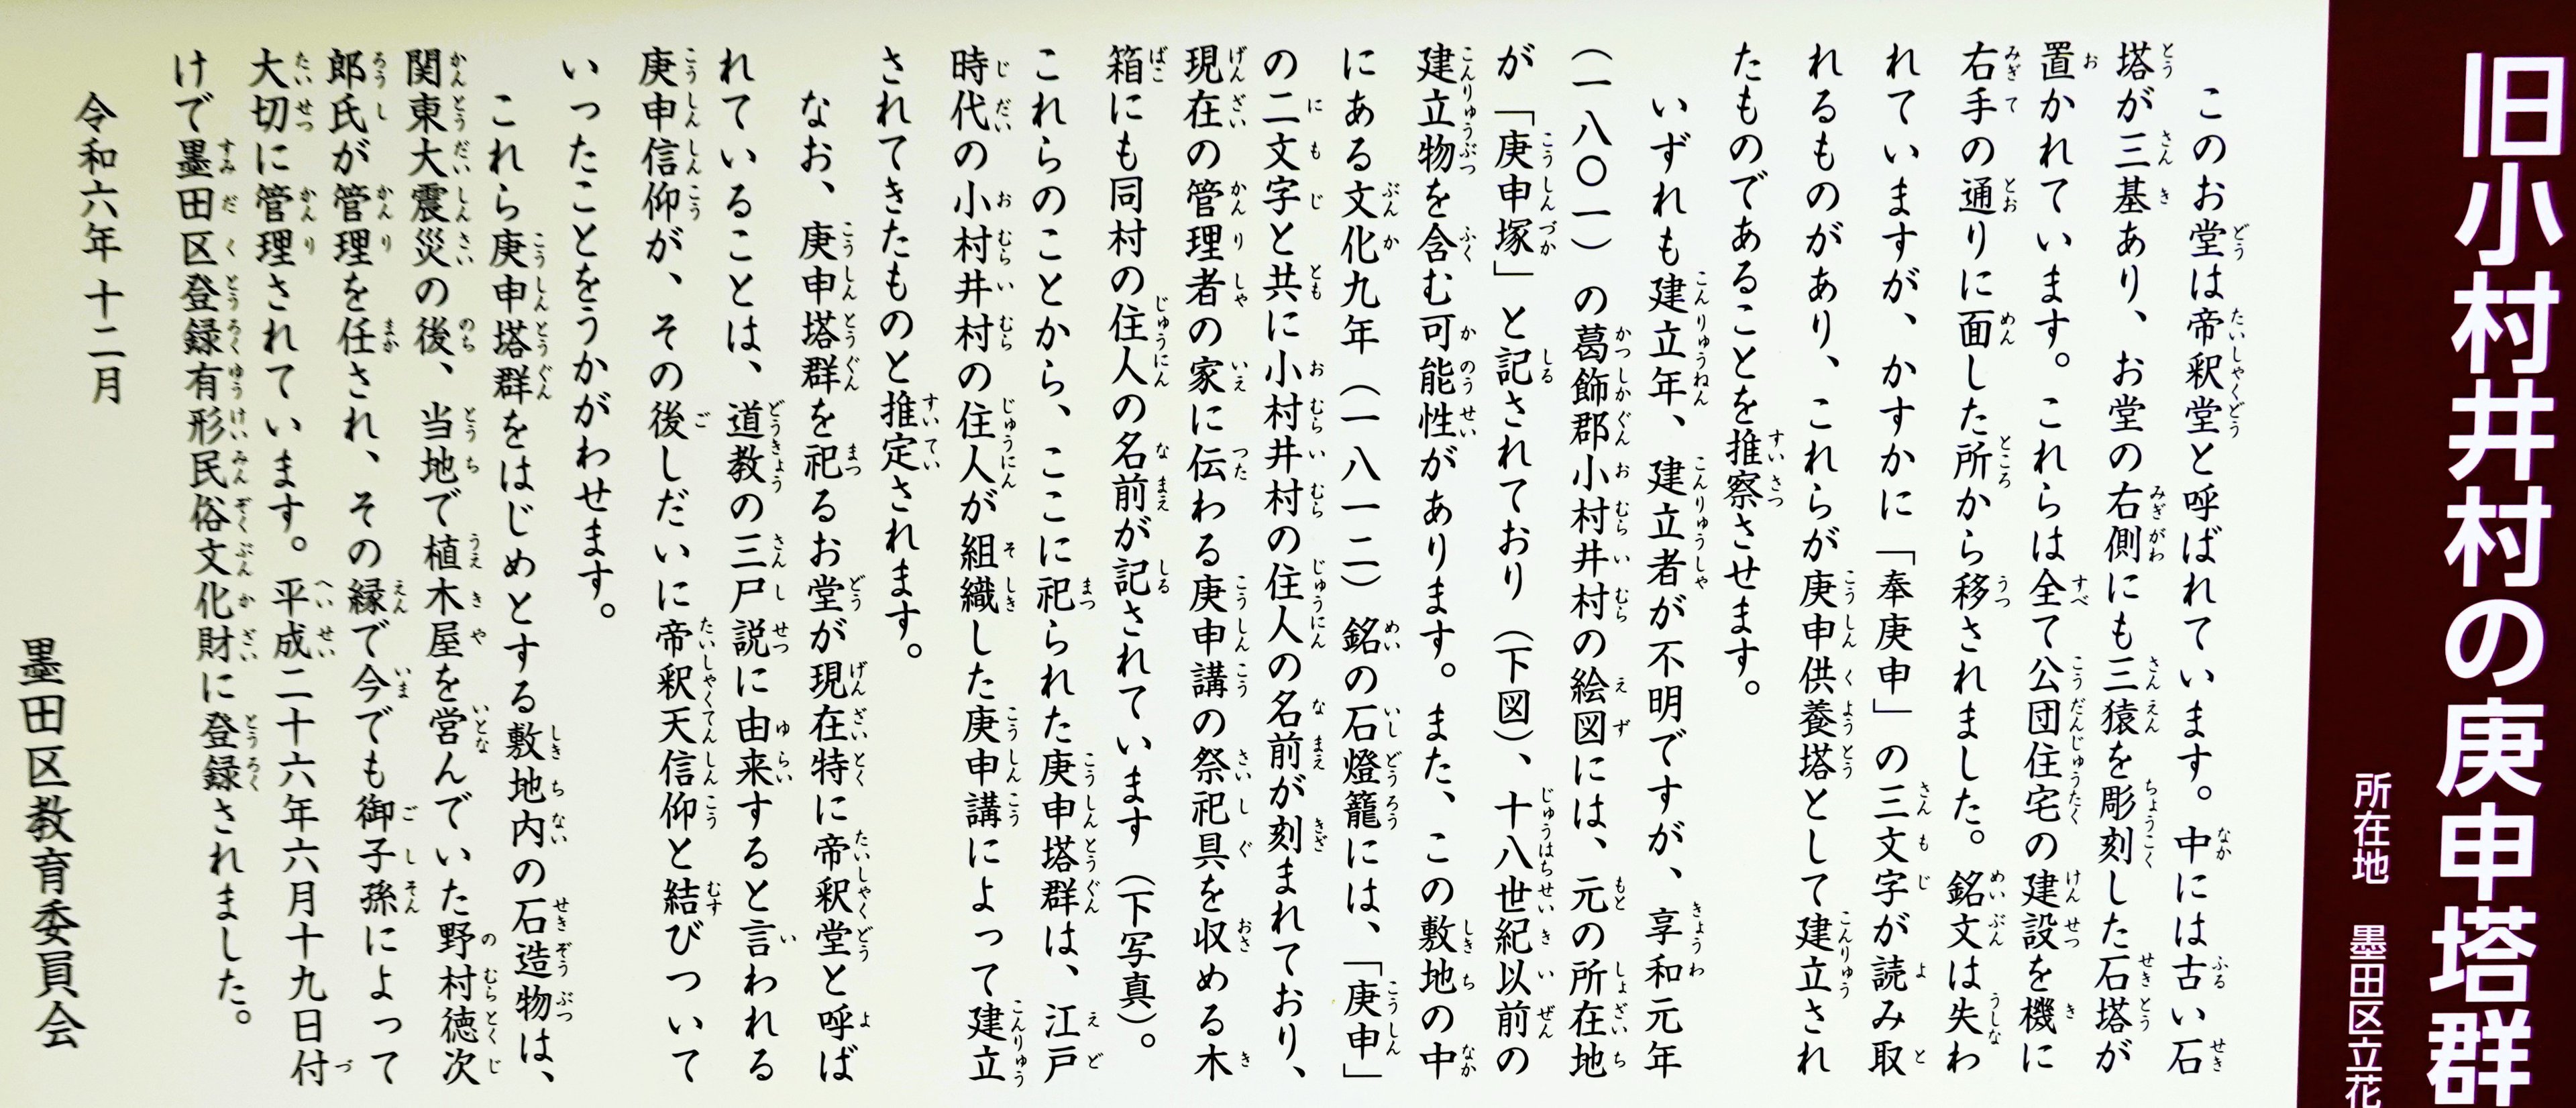 旧小村井村の庚申塔群
所在地　墨田区立花
　このお堂は帝釈堂と呼ばれています。中には古い石
塔が三基あり、お堂の右側にも三猿を彫刻した石塔が
置かれています。これらは全て公団住宅の建設を機に
右手の通りに面した所から移されました。銘文は失わ
れていますが、かすかに「奉庚申」の三文字が読み取
れるものがあり、これらが庚申供養塔として建立され
たものであることを推察させます。
　いずれも建立年、建立者が不明ですが、享和元年
（一八〇一）の葛飾郡小村井村の絵図には、元の所在地
が「庚申塚」と記されており（下図）、十八世紀以前の
建立物を含む可能性があります。また、この敷地の中
にある文化九年（一八一二）銘の石燈籠には、「庚申」
の二文字と共に小村井村の住人の名前が刻まれており、
現在の管理者の家に伝わる庚申講の祭祀具を収める木
箱にも同村の住人の名前が記されています（下写真）。
これらのことから、ここに祀られた庚申塔群は、江戸
時代の小村井村の住人が組織した庚申講によって建立
されてきたものと推定されます。
　なお、庚申塔群を祀るお堂が現在特に帝釈堂と呼ば
れていることは、道教の三尸説に由来すると言われる
庚申信仰が、その後しだいに帝釈天信仰と結びついて
いったことをうかがわせます。
　これら庚申塔群をはじめとする敷地内の石造物は、
関東大震災の後、当地で植木屋を営んでいた野村徳次
郎氏が管理を任され、その縁で今でも御子孫によって
大切に管理されています。平成二十六年六月十九日付
けで墨田区登録有形民俗文化財に登録されました。
令和六年十二月
墨田区教育委員会